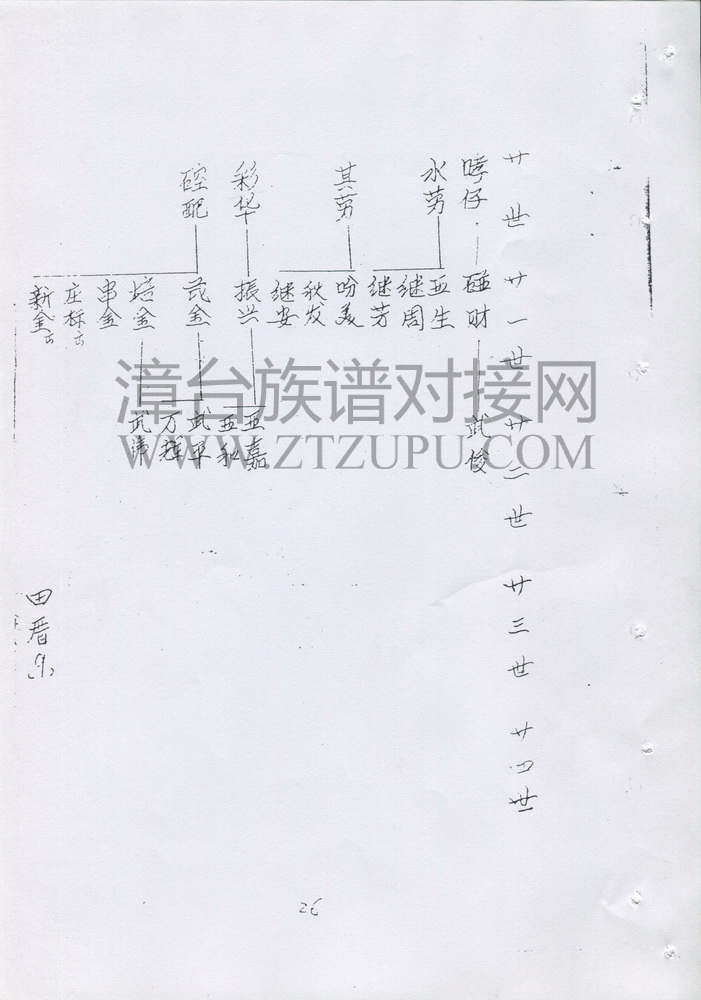 廿世 廿一世 廿二世 廿三世 廿四世
哮仔 碰财 武俊
水势
亚生
继周
继芳
其势
吩美
秋发
继安
彩华 振兴
亚嘉
亚和
硿配
茂金
武军
万辉
培金
串金
庄标
新金
田厝
26
漳台族谱对接网
WWW.ZTZUPU.COM